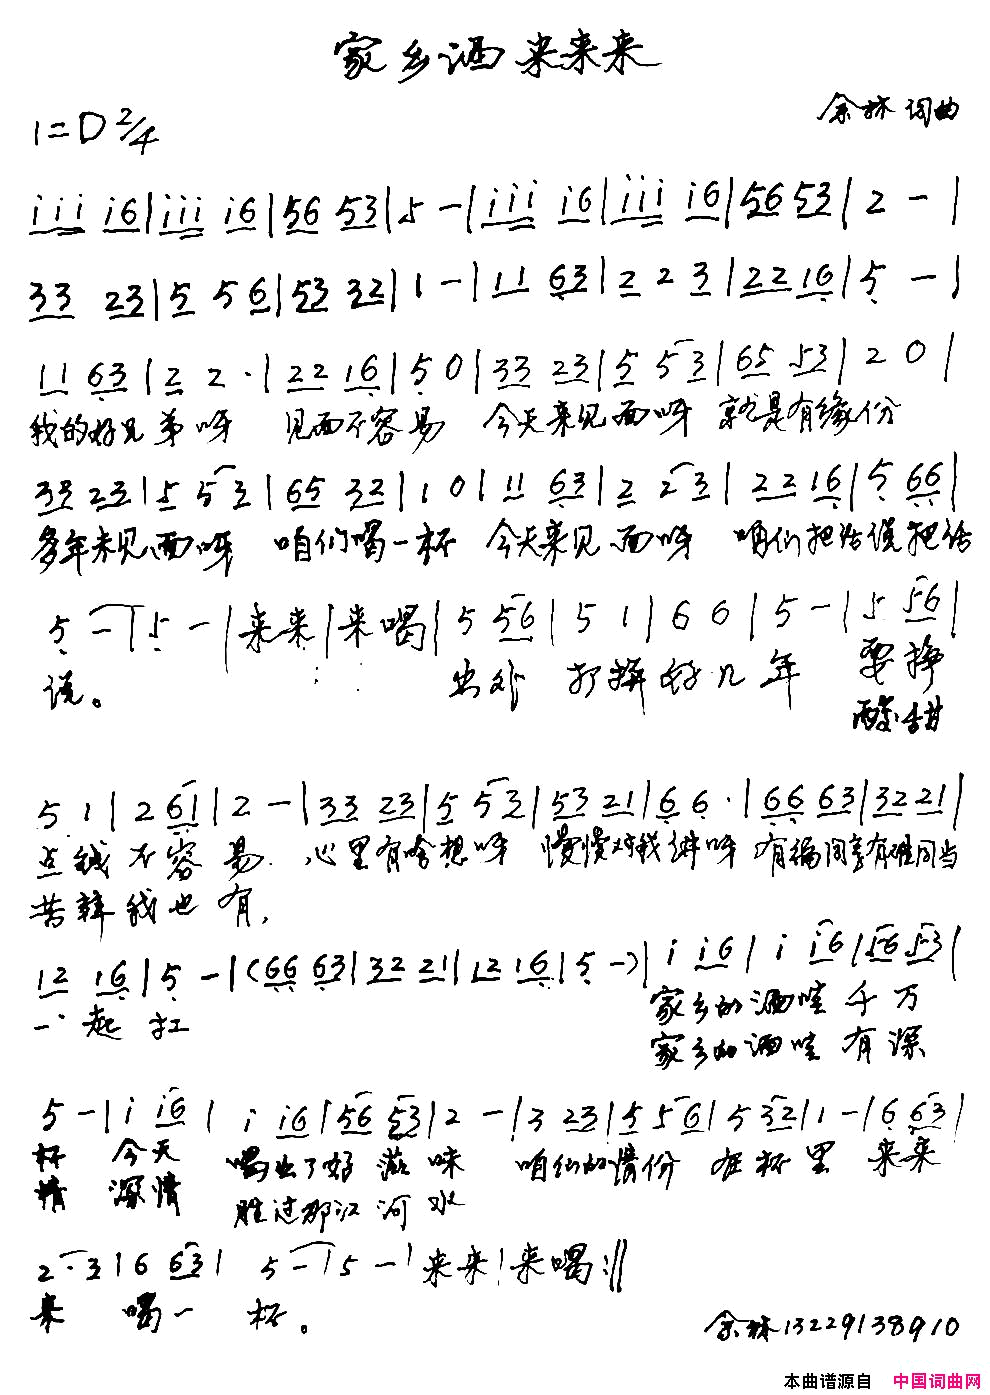 家乡酒来来来
余林 词曲
1=D 2/4
i i i i 6 | i i i i 6 | 5 6 5 3 | 5 - | i i i i 6 | i i i i 6 | 5 6 5 3 | 2 - |
3 3 2 3 | 5 5 6 | 5 3 3 2 | 1 - | 1 1 6 3 | 2 2 3 | 2 2 1 6 | 5 - |
1 1 6 3 | 2 2 · | 2 2 1 6 | 5 0 | 3 3 2 3 | 5 5 3 | 6 5 5 3 | 2 0 |
我的好兄弟呀 见面不容易 今天来见面呀 就是有缘份
3 3 2 3 | 5 5 3 | 6 5 3 2 | 1 0 | 1 1 6 3 | 2 2 3 | 2 2 1 6 | 5 6 6 |
多年未见面呀 咱们喝一杯 今天来见面呀 咱们把话说把话
5 - | 5 - | 来来 | 来喝 | 5 5 6 | 5 1 | 6 6 | 5 - | 5 5 6 |
说。 出外 打拼好几年 要挣
酸甜
5 1 | 2 6 1 | 2 - | 3 3 2 3 | 5 5 3 | 5 3 2 1 | 6 6 · | 6 6 6 3 | 3 2 2 1 |
点钱不容易. 心里有啥想呀 慢慢对我讲呀 有福同享有难同当
苦辣我也有,
1 2 1 6 | 5 - | (6 6 6 3 | 3 2 2 1 | 1 2 1 6 | 5 -) | i i 6 | i i 6 | 5 6 5 3 |
一起扛 家乡的酒哇千万
家乡的酒哇有深
5 - | i i 6 | i i 6 | 5 6 5 3 | 2 - | 3 2 3 | 5 5 6 | 5 3 2 | 1 - | 6 6 3 |
杯 今天 喝出了好滋味 咱们的情份在杯里 来来
情 深情 胜过那江河水
2 · 3 | 6 6 3 | 5 - | 5 - | 来来 | 来喝 :||
来 喝一 杯。
余林13229138910
本曲谱源自 中国词曲网